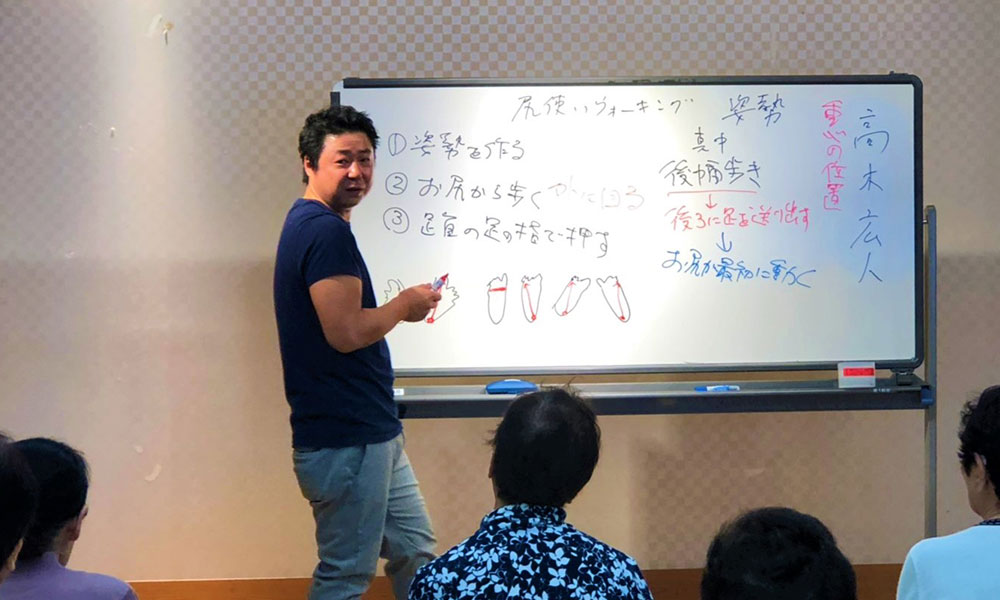 尻使いウォーキング
①姿勢を作る
②お尻から歩く
③足の指で押す
姿勢
真中
後幅歩き
↓
後ろに足を送り出す
↓
お尻が最初に動く
重心の位置
高木広人